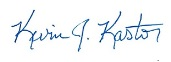 Kevin J. Kastor